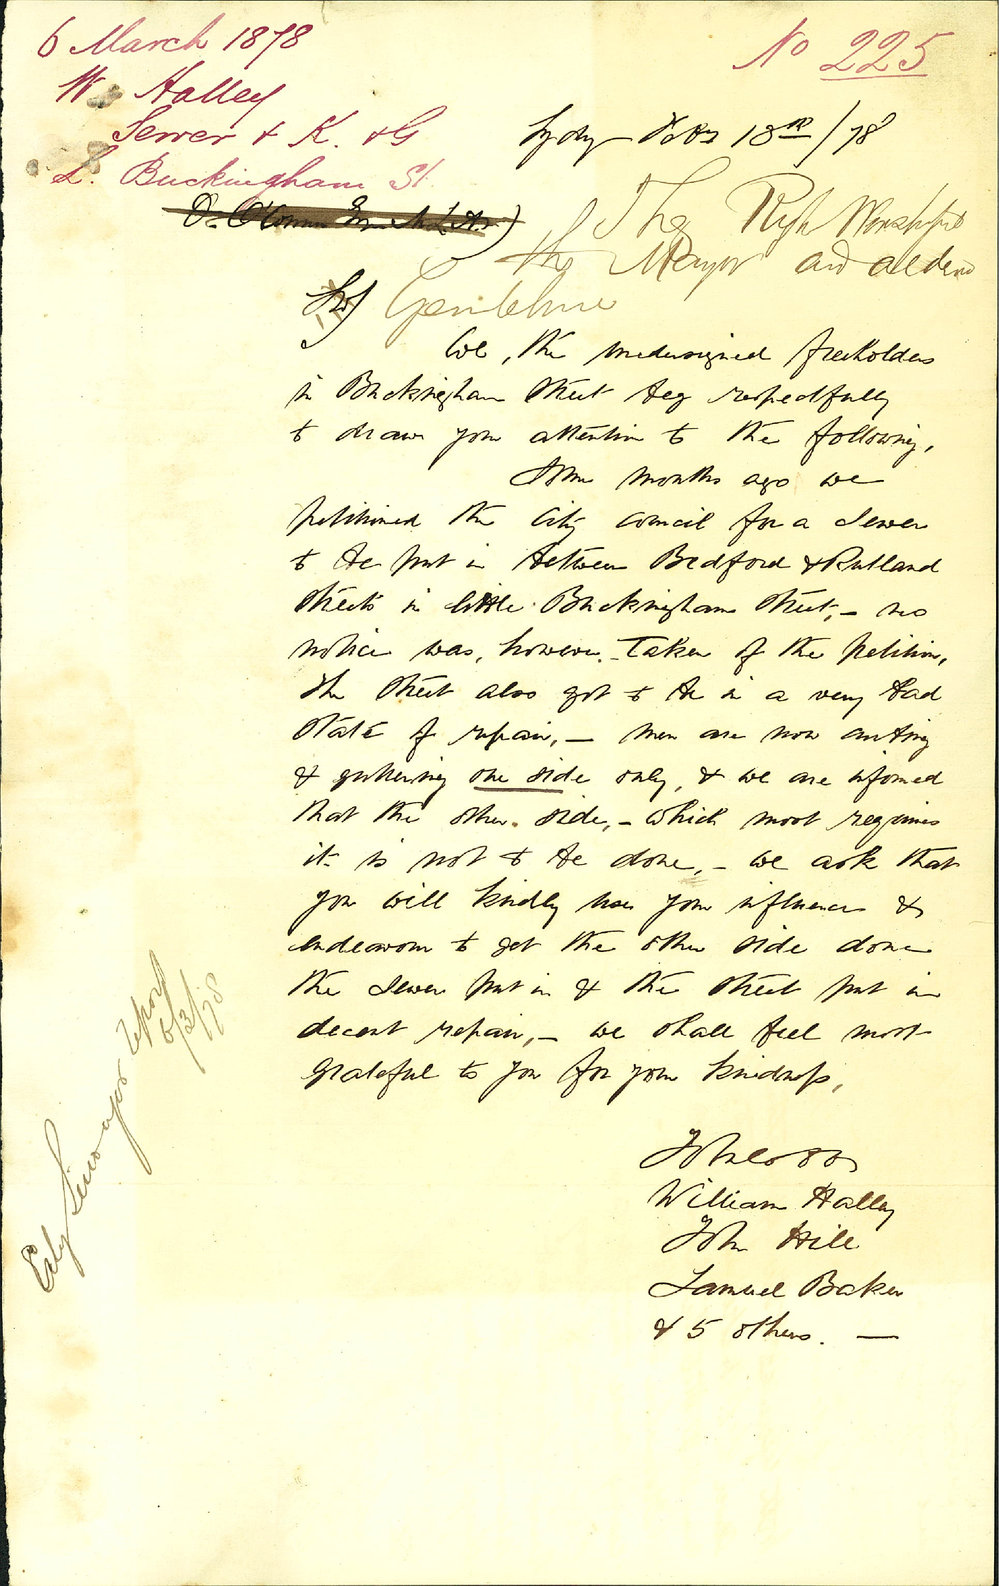 6 March 1878
No 225
W. Halley
Sewer & K. & G
L. Buckingham St.
Sydney Feby 18th /78
The Right Worshipful
the Mayor and aldermen
Gentlemen
We, the undersigned freeholders
in Buckingham Street beg respectfully
to draw your attention to the following,
Some months ago we
petitioned the City Council for a Sewer
to be put in between Bedford & Rutland
Streets in little Buckingham Street, – no
notice was, however, taken of the petition,
the Street also got to be in a very bad
state of repair, – men are now curbing
& guttering one side only, & we are informed
that the other side, – which most requires
it is not to be done, – we ask that
you will kindly use your influence &
endeavour to get the other side done
the Sewer put in & the Street put in
decent repair, – we shall feel most
grateful to you for your kindness,
William Halley
John Hill
Samuel Baker
& 5 others. —
City Surveyor report
6/3/78